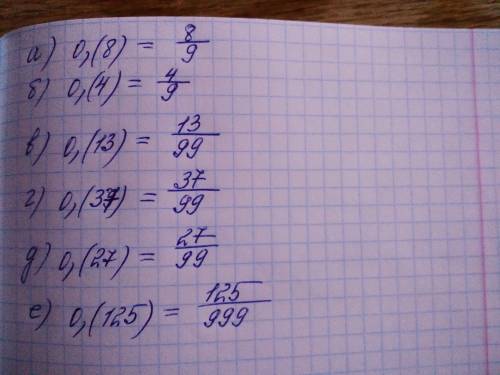 а) 0,(8) = 8/9
б) 0,(4) = 4/9
в) 0,(13) = 13/99
г) 0,(37) = 37/99
д) 0,(27) = 27/99
е) 0,(125) = 125/999